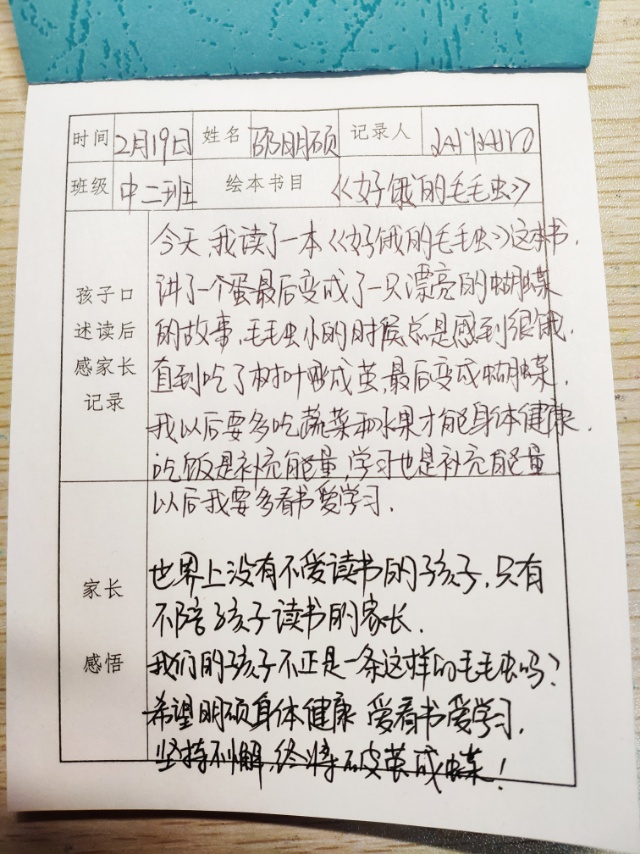 时间 2月19日 姓名 邵明硕 记录人
班级 中二班 绘本书目 《好饿的毛毛虫》
孩子口
述读后
感家长
记录
今天,我读了一本《好饿的毛毛虫》这本书,
讲了一个蛋最后变成了一只漂亮的蝴蝶
的故事,毛毛虫小的时候总是感到很饿,
直到吃了树叶形成茧,最后变成蝴蝶,
我以后要多吃蔬菜和水果才能身体健康.
吃饭是补充能量,学习也是补充能量
以后我要多看书爱学习.
家长
感悟
世界上没有不爱读书的孩子,只有
不陪孩子读书的家长.
我们的孩子不正是一条这样的毛毛虫吗?
希望明硕身体健康 爱看书爱学习,
坚持不懈,终将破茧成蝶!